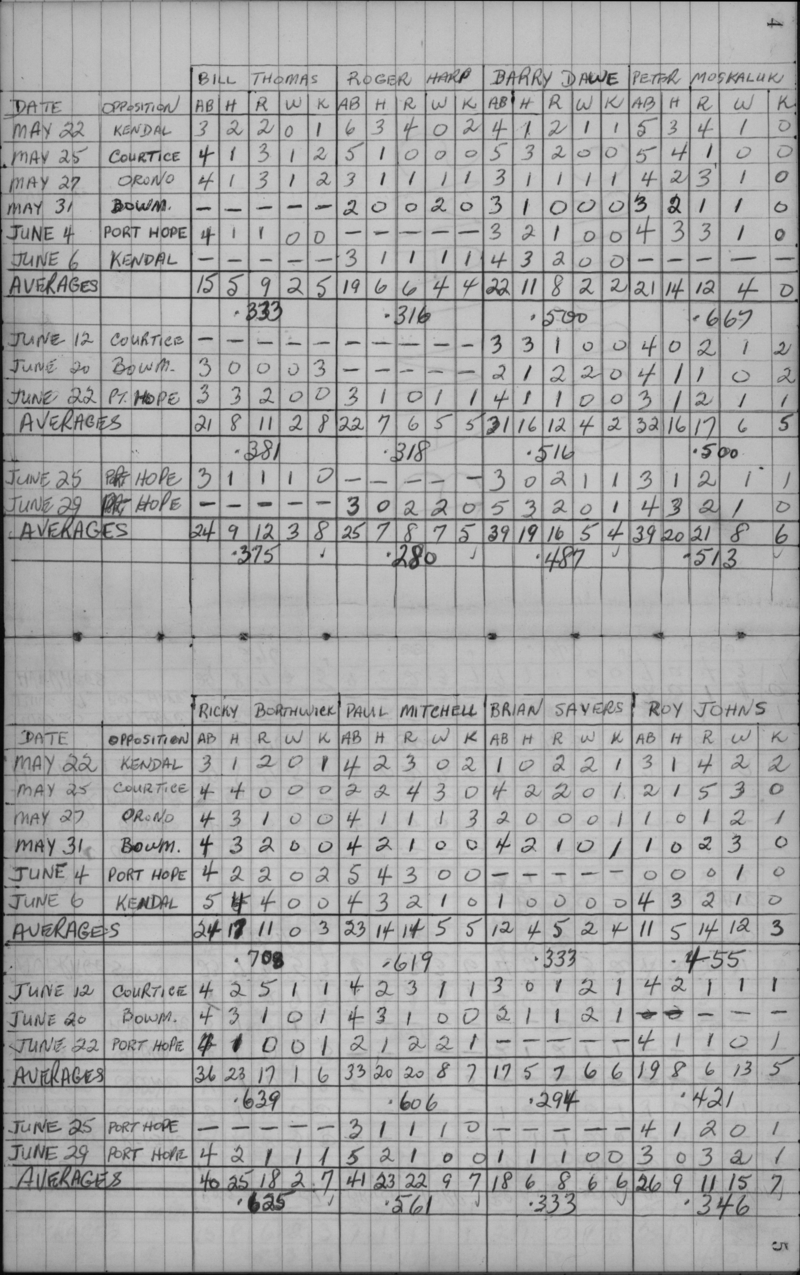 4
BILL THOMAS ROGER HARP BARRY DAWE PETER MOSKALUK
DATE OPPOSITION AB H R W K AB H R W K AB H R W K AB H R W K
MAY 22 KENDAL 3 2 2 0 1 6 3 4 0 2 4 1 2 1 1 5 3 4 1 0
MAY 25 COURTICE 4 1 3 1 2 5 1 0 0 0 5 3 2 0 0 5 4 1 0 0
MAY 27 ORONO 4 1 3 1 2 3 1 1 1 1 3 1 1 1 1 4 2 3 1 0
MAY 31 BOWM. – – – – – 2 0 0 2 0 3 1 0 0 0 3 2 1 1 0
JUNE 4 PORT HOPE 4 1 1 0 0 – – – – – 3 2 1 0 0 4 3 3 1 0
JUNE 6 KENDAL – – – – – 3 1 1 1 1 4 3 2 0 0 – – – – –
AVERAGES 15 5 9 2 5 19 6 6 4 4 22 11 8 2 2 21 14 12 4 0
.333 .316 .500 .667
JUNE 12 COURTICE – – – – – – – – – – 3 3 1 0 0 4 0 2 1 2
JUNE 20 BOWM. 3 0 0 0 3 – – – – – 2 1 2 2 0 4 1 1 0 2
JUNE 22 PT. HOPE 3 3 2 0 0 3 1 0 1 1 4 1 1 0 0 3 1 2 1 1
AVERAGES 21 8 11 2 8 22 7 6 5 5 31 16 12 4 2 32 16 17 6 5
.381 .318 .516 .500
JUNE 25 HOPE 3 1 1 1 0 – – – – – 3 0 2 1 1 3 1 2 1 1
JUNE 29 HOPE – – – – – 3 0 2 2 0 5 3 2 0 1 4 3 2 1 0
AVERAGES 24 9 12 3 8 25 7 8 7 5 39 19 16 5 4 39 20 21 8 6
.375 ✓ .280 ✓ .487 ✓ .513 ✓
RICKY BORTHWICK PAUL MITCHELL BRIAN SAYERS ROY JOHNS
DATE OPPOSITION AB H R W K AB H R W K AB H R W K AB H R W K
MAY 22 KENDAL 3 1 2 0 1 4 2 3 0 2 1 0 2 2 1 3 1 4 2 2
MAY 25 COURTICE 4 4 0 0 0 2 2 4 3 0 4 2 2 0 1 2 1 5 3 0
MAY 27 ORONO 4 3 1 0 0 4 1 1 1 3 2 0 0 0 1 1 0 1 2 1
MAY 31 BOWM. 4 3 2 0 0 4 2 1 0 0 4 2 1 0 1 1 0 2 3 0
JUNE 4 PORT HOPE 4 2 2 0 2 5 4 3 0 0 – – – – – 0 0 0 1 0
JUNE 6 KENDAL 5 4 4 0 0 4 3 2 1 0 1 0 0 0 0 4 3 2 1 0
AVERAGES 24 17 11 0 3 23 14 14 5 5 12 4 5 2 4 11 5 14 12 3
.708 .619 .333 .455
JUNE 12 COURTICE 4 2 5 1 1 4 2 3 1 1 3 0 1 2 1 4 2 1 1 1
JUNE 20 BOWM. 4 3 1 0 1 4 3 1 0 0 2 1 1 2 1 – – – – –
JUNE 22 PORT HOPE 4 1 0 0 1 2 1 2 2 1 – – – – – 4 1 1 0 1
AVERAGES 36 23 17 1 6 33 20 20 8 7 17 5 7 6 6 19 8 6 13 5
.639 .606 .294 .421
JUNE 25 PORT HOPE – – – – – 3 1 1 1 0 – – – – – 4 1 2 0 1
JUNE 29 PORT HOPE 4 2 1 1 1 5 2 1 0 0 1 1 1 0 0 3 0 3 2 1
AVERAGES 40 25 18 2 7 41 23 22 9 7 18 6 8 6 6 26 9 11 15 7
.625 ✓ .561 ✓ .333 ✓ .346 ✓
5